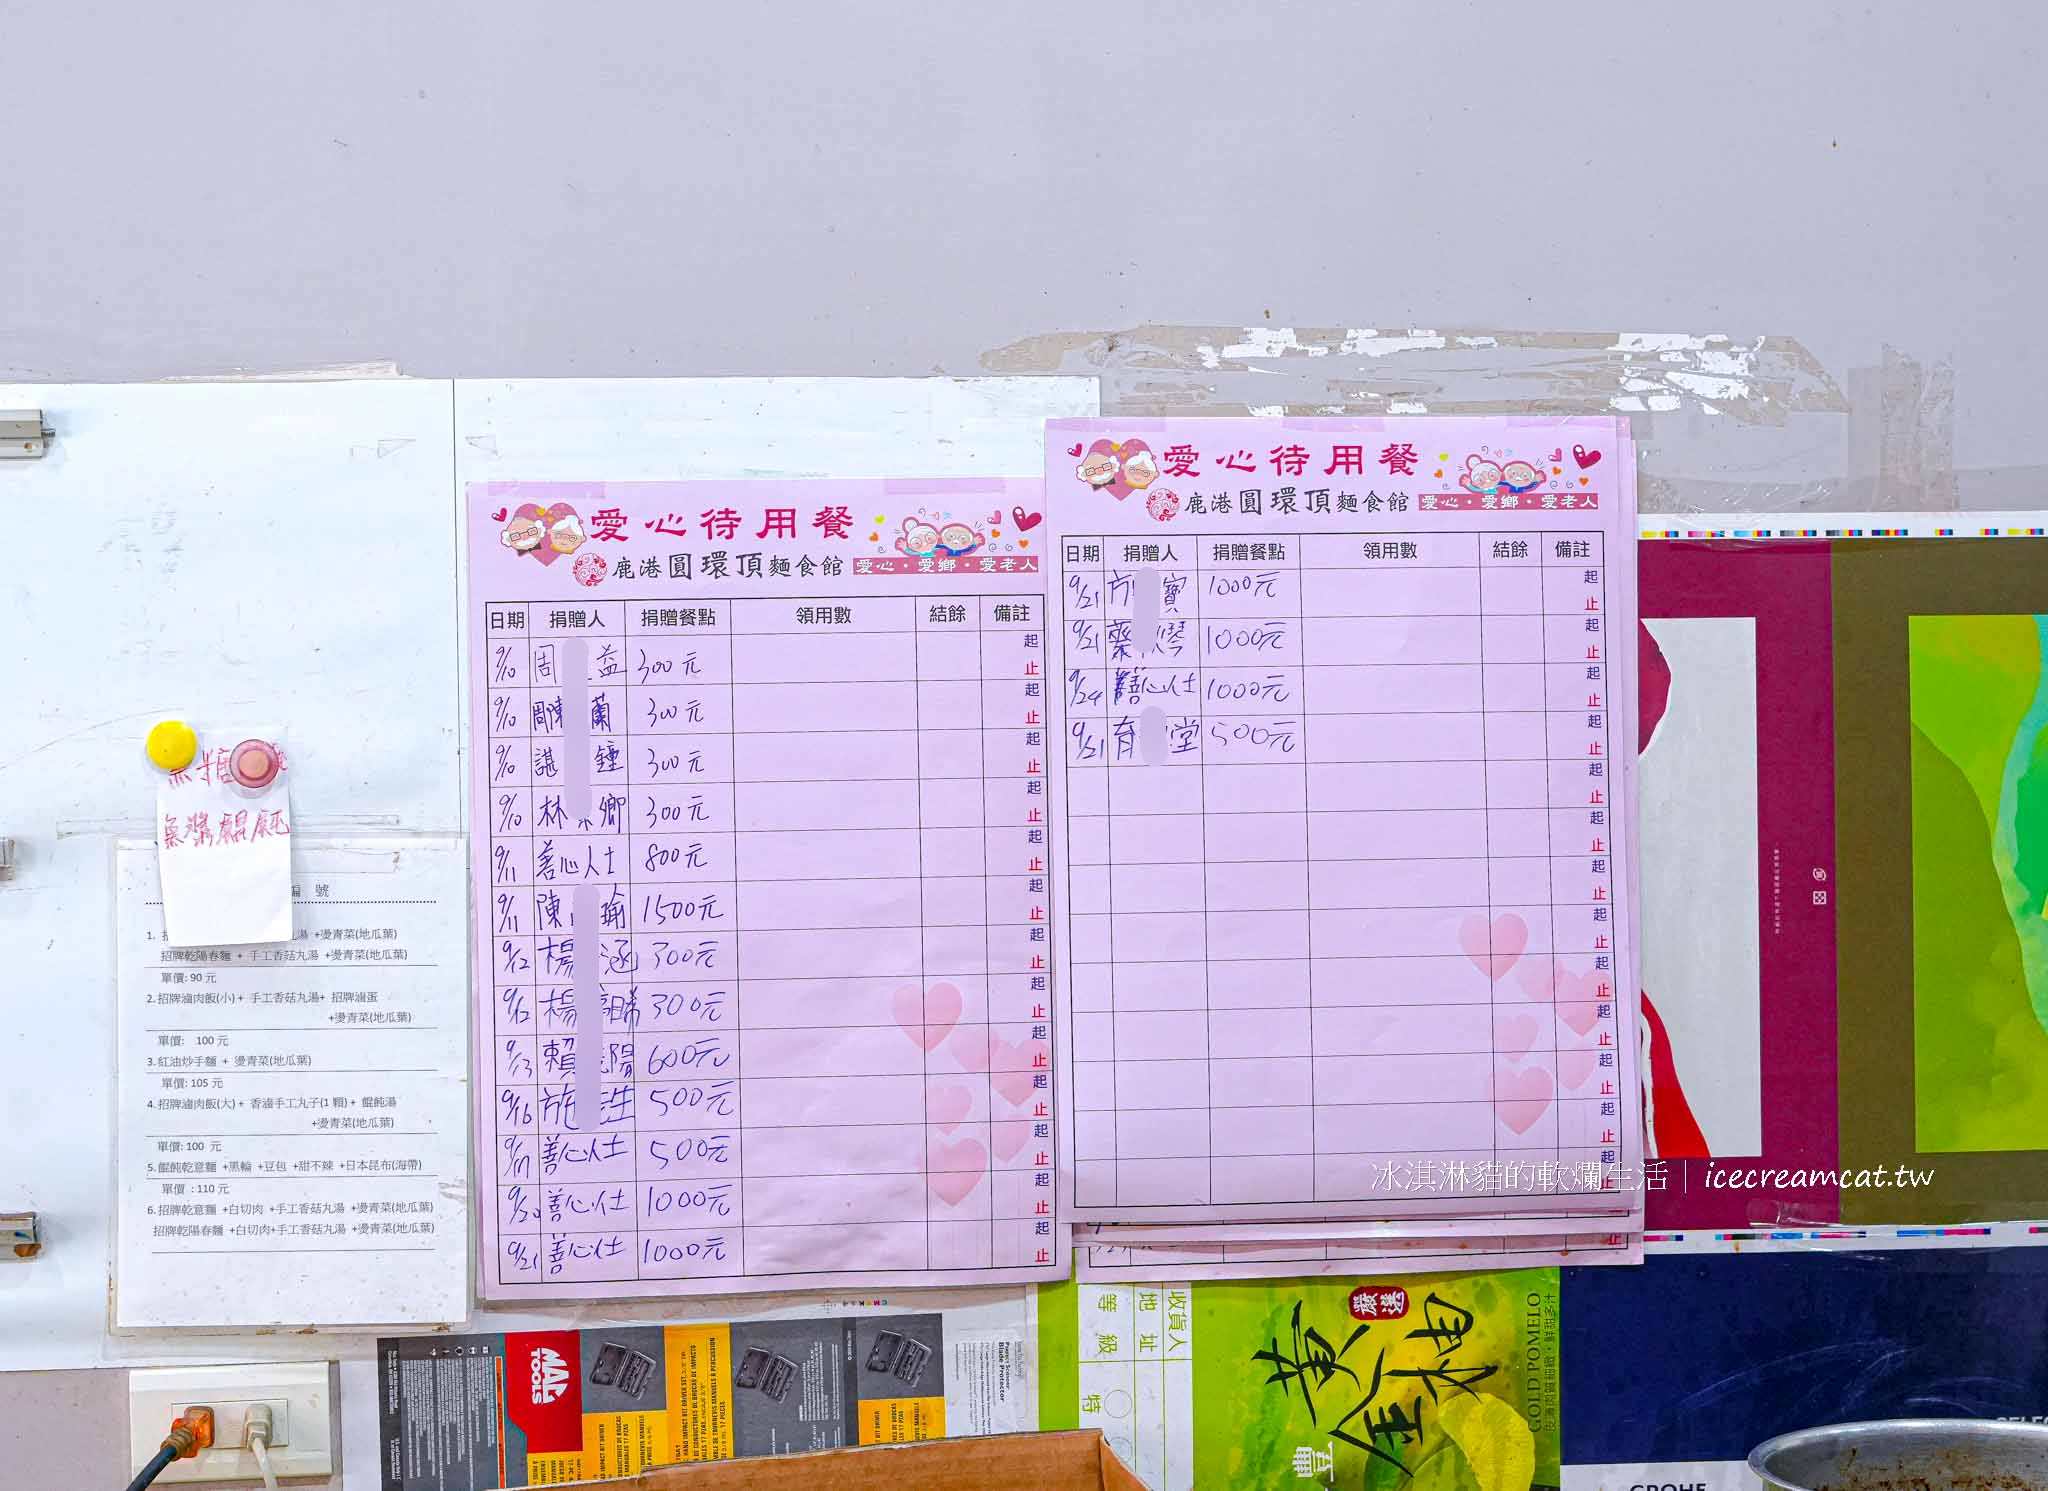 無糖
無漿餛飩
編 號
1. 招 丸湯 +燙青菜(地瓜葉)
招牌乾陽春麵 + 手工香菇丸湯 +燙青菜(地瓜葉)
單價: 90 元
2. 招牌滷肉飯(小) + 手工香菇丸湯+ 招牌滷蛋
+燙青菜(地瓜葉)
單價: 100 元
3. 紅油炒手麵 + 燙青菜(地瓜葉)
單價: 105 元
4. 招牌滷肉飯(大) + 香滷手工丸子(1 顆) + 餛飩湯
+燙青菜(地瓜葉)
單價: 100 元
5. 餛飩乾意麵 +黑輪 +豆包 +甜不辣 +日本昆布(海帶)
單價 : 110 元
6. 招牌乾意麵 +白切肉 +手工香菇丸湯 +燙青菜(地瓜葉)
招牌乾陽春麵 +白切肉+手工香菇丸湯 +燙青菜(地瓜葉)
愛心待用餐
鹿港圓環頂麵食館 愛心・愛鄉・愛老人
日期 捐贈人 捐贈餐點 領用數 結餘 備註
9/10 周 益 300元 起 止
9/10 周陳 蘭 300元 起 止
9/10 諶 鐘 300元 起 止
9/10 林 鄉 300元 起 止
9/11 善心人士 800元 起 止
9/11 陳 瑜 1500元 起 止
9/12 楊 涵 300元 起 止
9/12 楊 300元 起 止
9/13 賴 陽 600元 起 止
9/16 施 生 500元 起 止
9/17 善心人士 500元 起 止
9/20 善心人士 1000元 起 止
9/21 善心人士 1000元 起 止
愛心待用餐
鹿港圓環頂麵食館 愛心・愛鄉・愛老人
日期 捐贈人 捐贈餐點 領用數 結餘 備註
9/21 方 寶 1000元 起 止
9/21 琴 1000元 起 止
9/24 善心人士 1000元 起 止
9/21 育 堂 500元 起 止
起 止
起 止
起 止
起 止
起 止
起 止
起 止
起 止
起 止
冰淇淋貓的軟爛生活｜icecreamcat.tw
MAC TOOLS
Blade Protector
收貨人
地址
等級
特
嚴選
黃金柚
GOLD POMELO
豐
GROHE